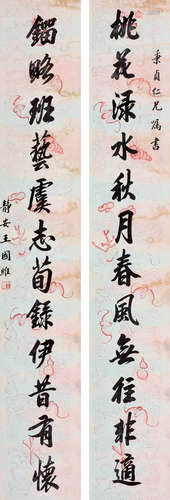 秉貞仁兄屬書
桃花渌水秋月春風無往非適
鐲略班藝虞志荀錄伊昔有懷
靜安王國維